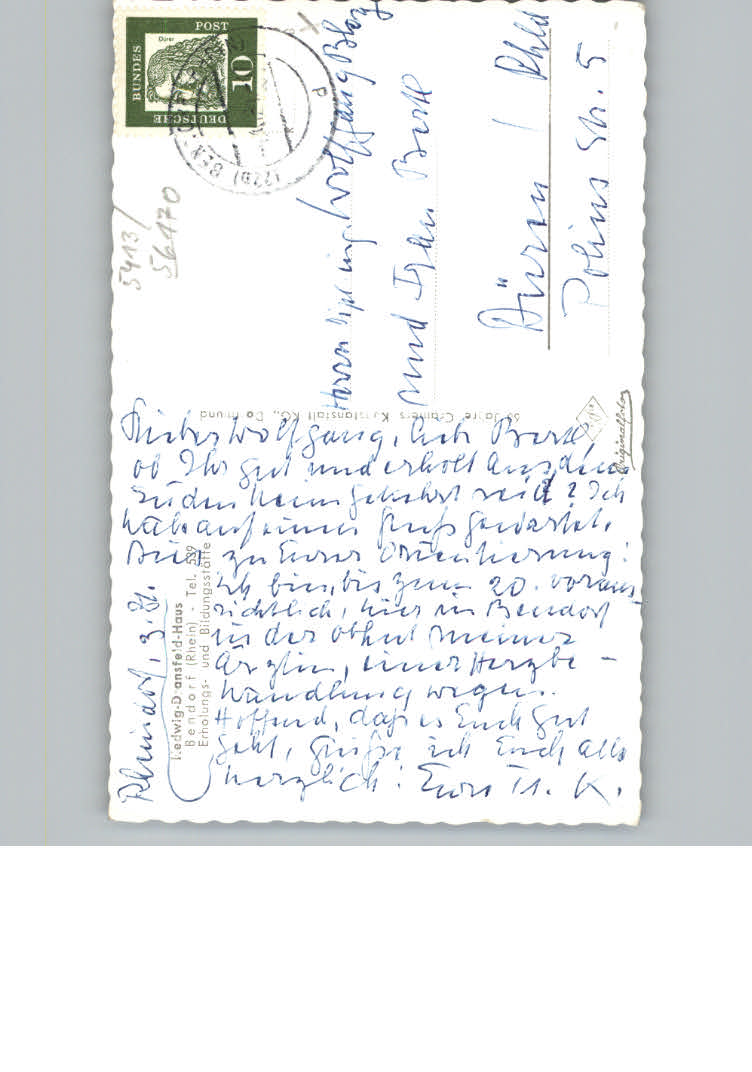 DEUTSCHE
BUNDES
POST
Dürer
10
(22b) BEN
5413/
56170
Herrn Dipl. ing. Wolfgang
und Frau Bertl
Düren / Rhld
Str. 5
50 Jahre Cramers Kunstanstalt KG., Dortmund
Originalfoto
Hedwig-Dransfeld-Haus
Bendorf (Rhein) - Tel. 539
Erholungs- und Bildungsstätte
Lieber Wolfgang, liebe Bertl,
ob Ihr gut und erholt aus dem
Süden heim gekehrt seid? Ich
hab auf einen Gruß gewartet.
Dies zu Eurer Orientierung:
Ich bin, bis zum 20. voraus-
sichtlich, hier in Bendorf
in der Obhut meiner
Ärztin, einer Herzbe-
handlung wegen.
Hoffend, daß es Euch gut
geht, grüße ich Euch alle
herzlich: Eure K.